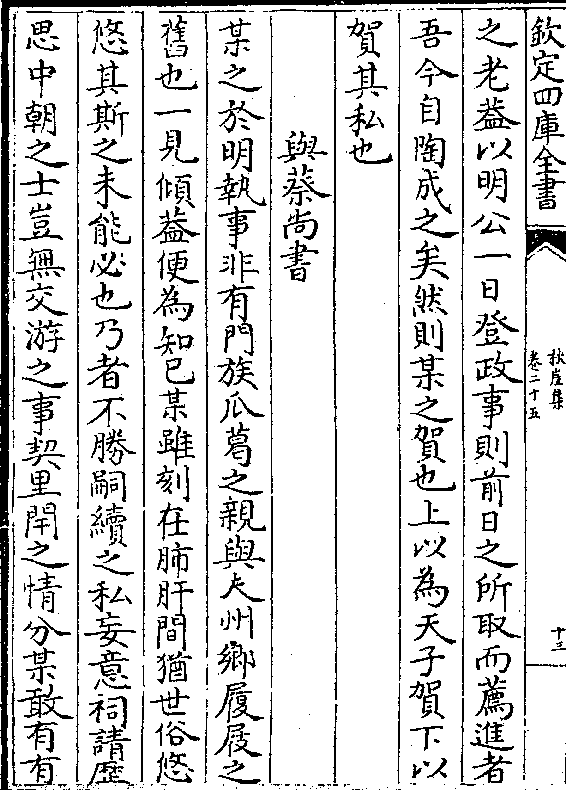 欽定四庫全書
秋崖集
卷二十五
十三
之老葢以明公一日登政事則前日之所取而薦進者
吾今自陶成之矣然則某之賀也上以為天子賀下以
賀其私也
與蔡尚書
某之於明執事非有門族瓜葛之親與夫州鄉履屐之
舊也一見傾葢便為知已某雖刻在肺肝間猶世俗悠
悠其斯之未能必也乃者不勝嗣續之私妄意祠請歴
思中朝之士豈無交游之事契里閈之情分某敢有有